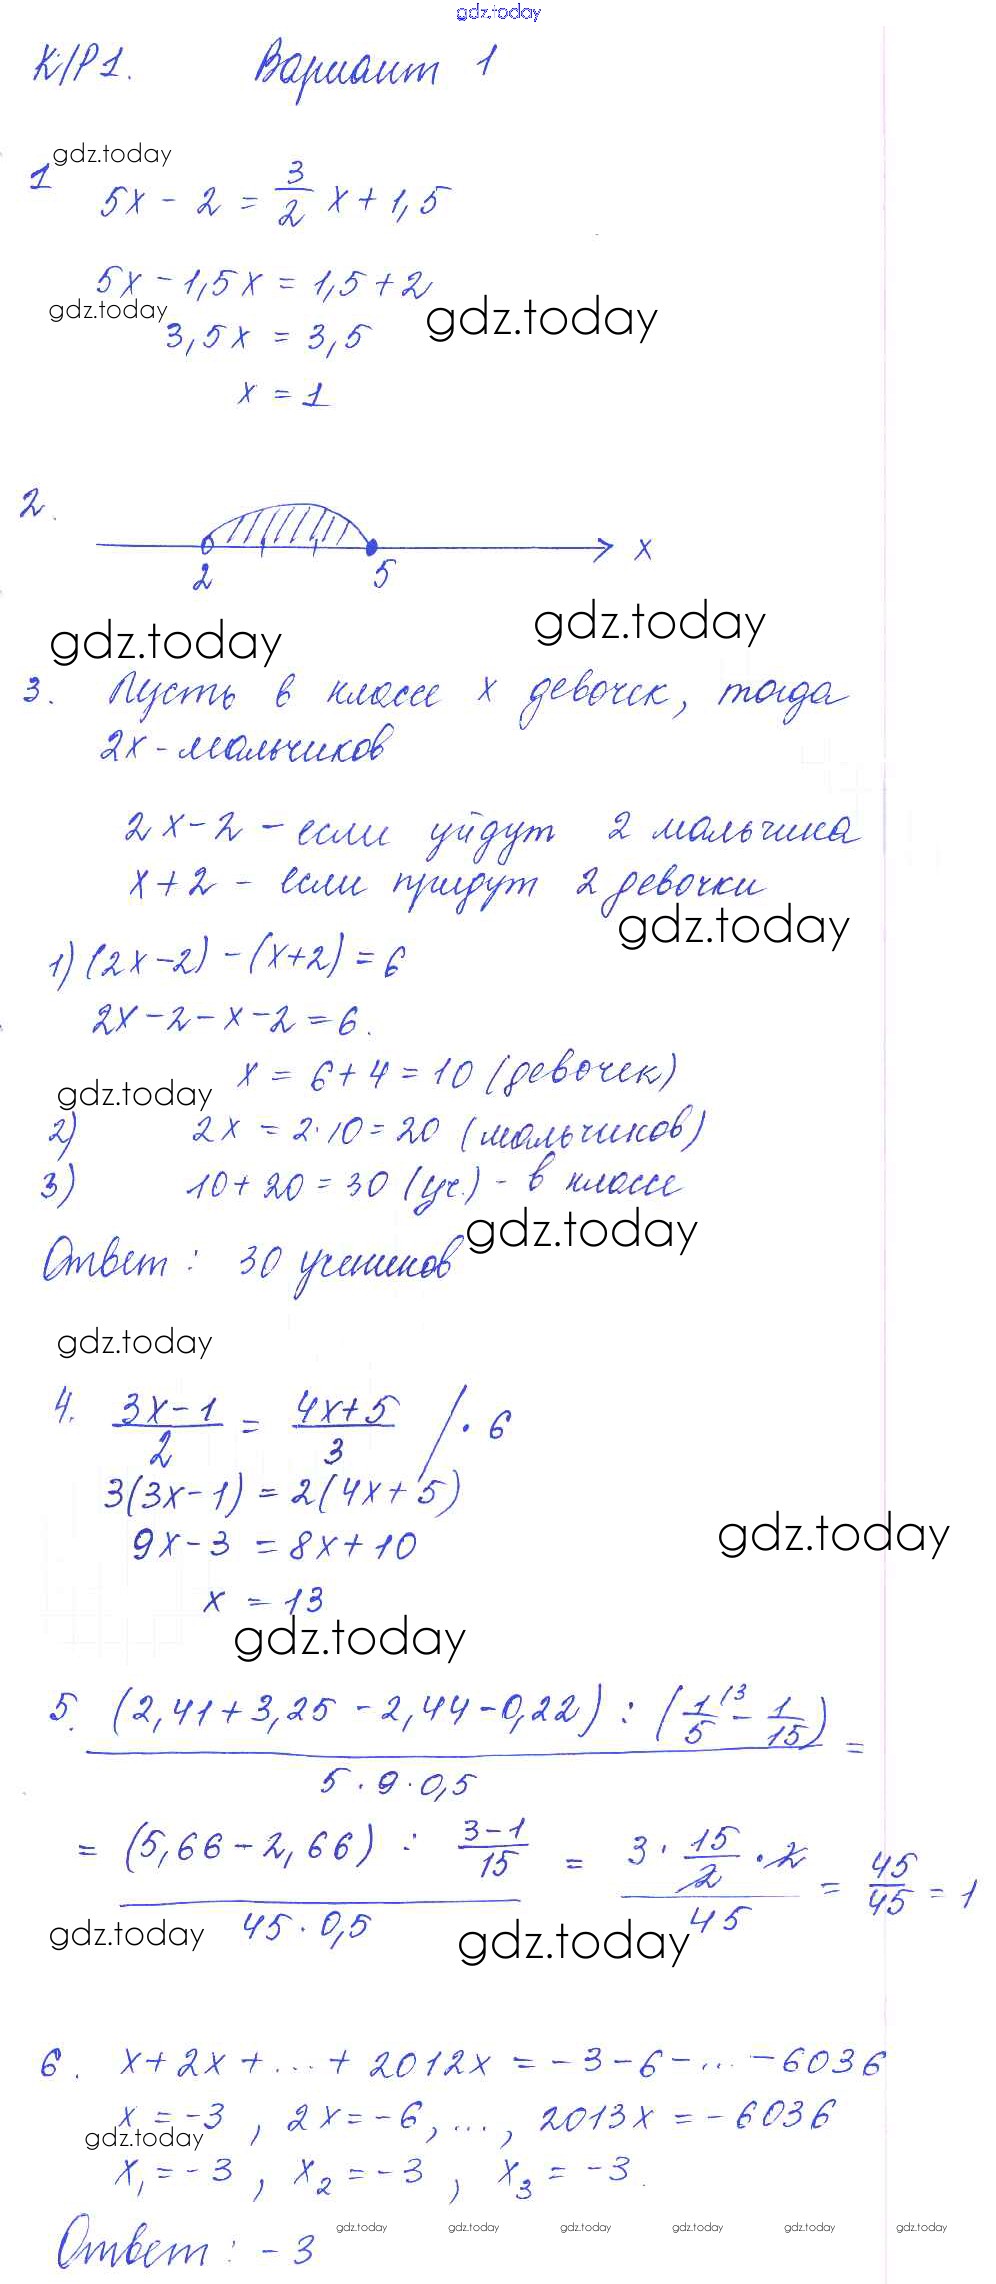 gdz.today
К/Р 1. Вариант 1
gdz.today
1 5x - 2 = 3/2 x + 1,5
5x - 1,5x = 1,5 + 2
gdz.today gdz.today
3,5x = 3,5
x = 1
2.
x
2 5
gdz.today gdz.today
3. Пусть в классе x девочек, тогда
2x - мальчиков
2x - 2 - если уйдут 2 мальчика
x + 2 - если придут 2 девочки
gdz.today
1) (2x - 2) - (x + 2) = 6
2x - 2 - x - 2 = 6.
x = 6 + 4 = 10 (девочек)
gdz.today
2) 2x = 2·10 = 20 (мальчиков)
3) 10 + 20 = 30 (уч.) - в классе
gdz.today
Ответ: 30 учеников
gdz.today
4. (3x - 1)/2 = (4x + 5)/3 / · 6
3(3x - 1) = 2(4x + 5)
9x - 3 = 8x + 10
gdz.today
x = 13
gdz.today
5. (2,41 + 3,25 - 2,44 - 0,22) : (1/5 \3 - 1/15) =
5 · 9 · 0,5
= (5,66 - 2,66) : (3 - 1)/15 = 3 · 15/2 · 2 = 45/45 = 1
45 · 0,5 45
gdz.today gdz.today
6. x + 2x + ... + 2012x = -3 - 6 - ... - 6036
x = -3, 2x = -6, ..., 2013x = -6036
gdz.today
x₁ = -3, x₂ = -3, x₃ = -3.
gdz.today gdz.today gdz.today gdz.today gdz.today gdz.today
Ответ: -3